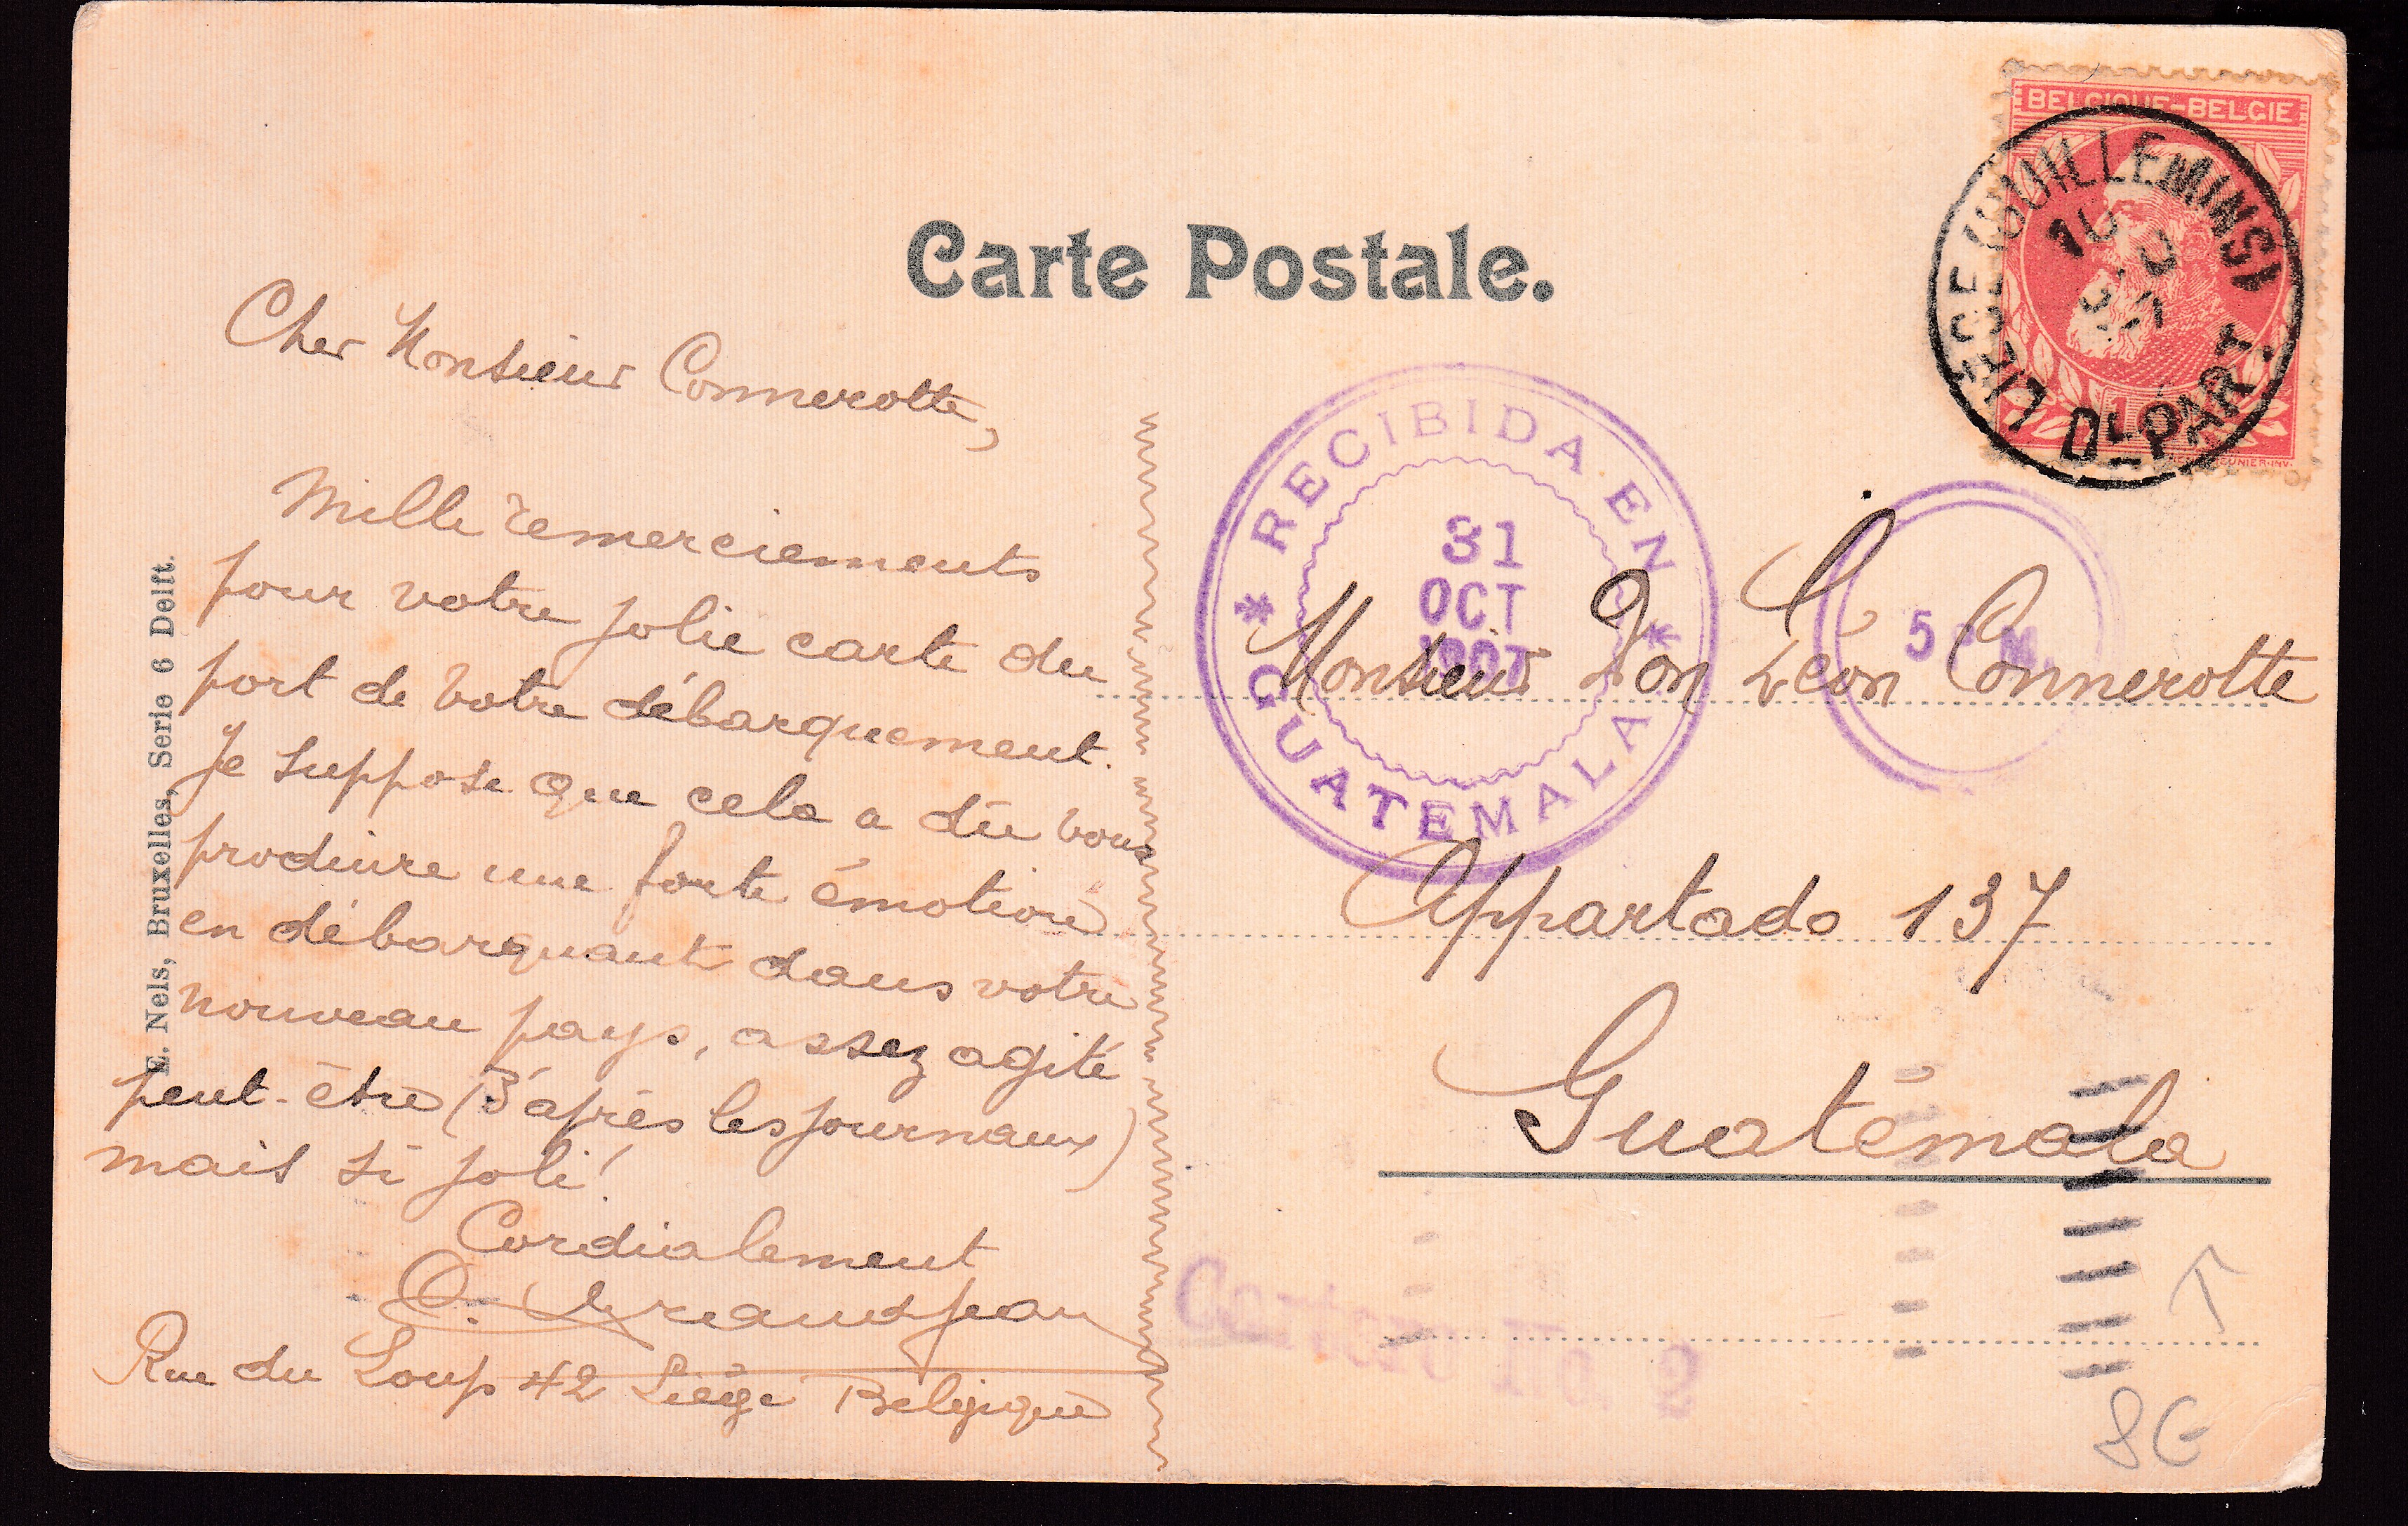 Carte Postale.
BELGIQUE-BELGIE
LIEGE (GUILLEMINS)
DEPART
RECIBIDA EN
GUATEMALA
31
OCT
1907
5 P M.
E. Nels, Bruxelles, Serie 6 Delft.
Cher Monsieur Connerotte,
Mille remerciements
pour votre jolie carte du
port de votre débarquement.
Je suppose que cela a dû vous
produire une forte émotion
en débarquant dans votre
nouveau pays, assez agité
peut-être (D'après les journaux)
mais si joli!
Cordialement
Rue du Loup 42 Liège Belgique
Monsieur Don Léon Connerotte
Appartado 137
Guatémala